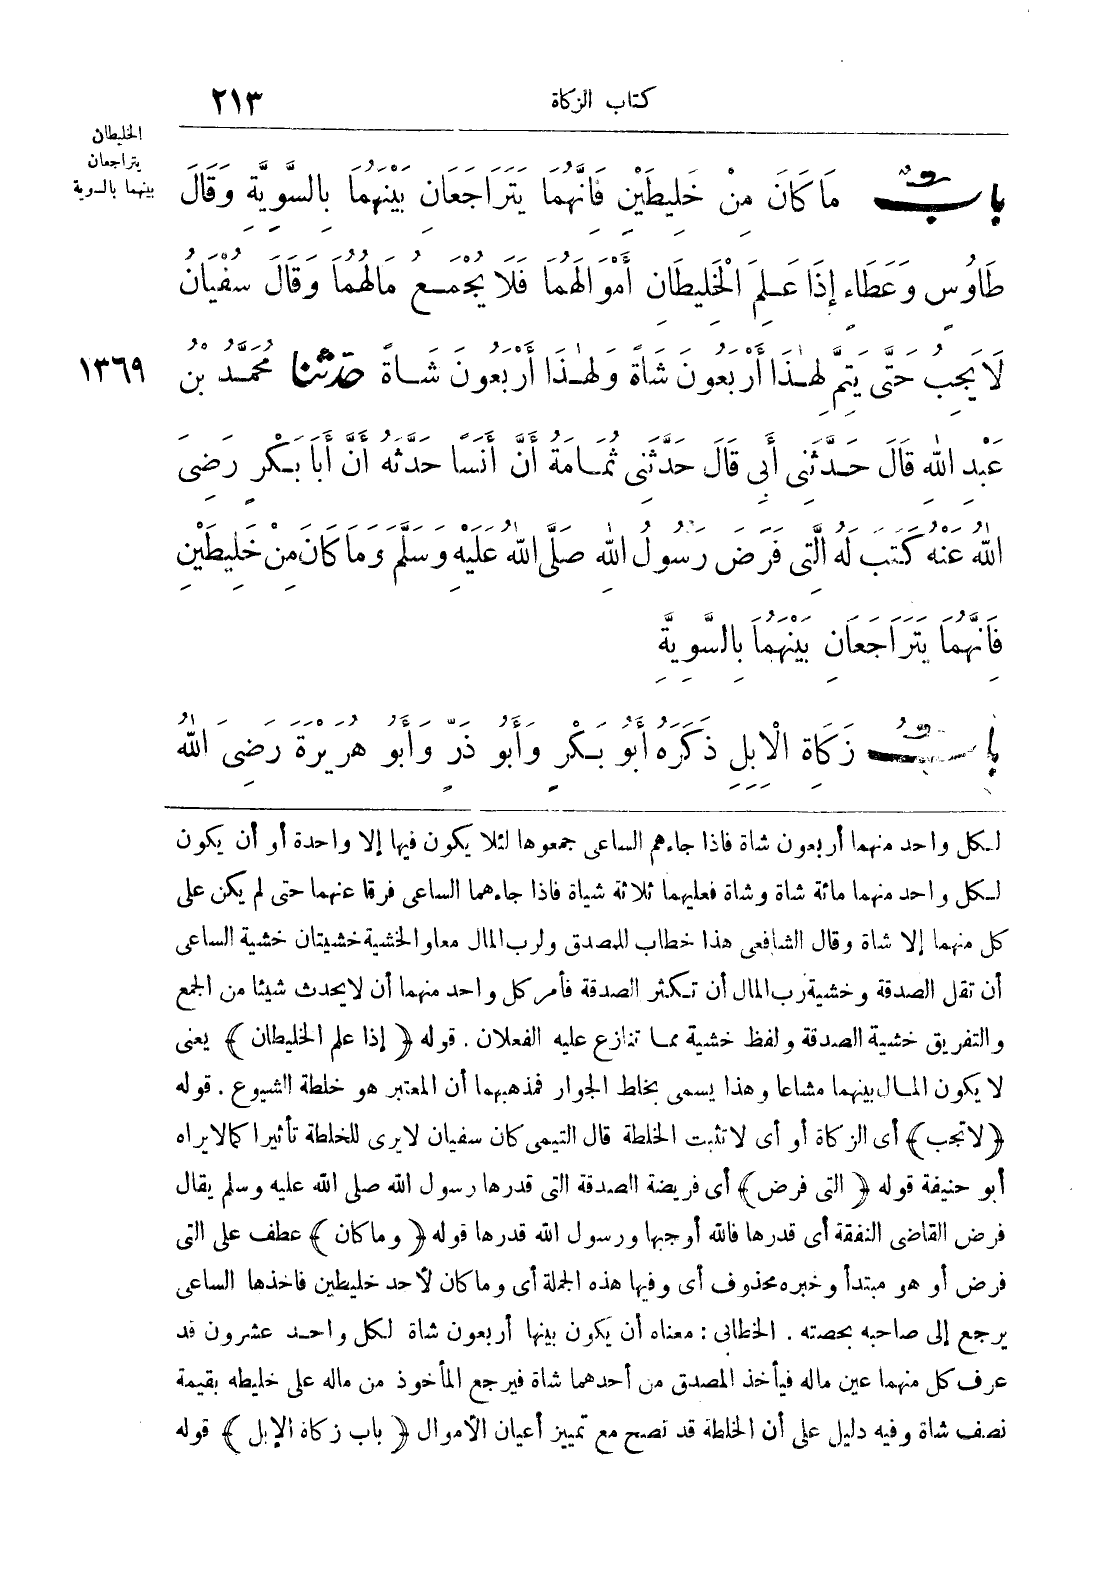 كتاب الزكاة
٢١٣
الخليطان
يتراجعان
بينهما بالسوية
بابٌ مَا كَانَ مِنْ خَلِيطَيْنِ فَانَّهُمَا يَتَرَاجَعَانِ بَيْنَهُمَا بِالسَّوِيَّةِ وَقَالَ
طَاوُسٍ وَعَطَاءٍ إِذَا عَلِمَ الْخَلِيطَانِ أَمْوَالَهُمَا فَلَا يُجْمَعُ مَالُهُمَا وَقَالَ سُفْيَانُ
لَا يَجِبُ حَتَّى يَتِمَّ لِهٰذَا أَرْبَعُونَ شَاةً وَلِهٰذَا أَرْبَعُونَ شَاةً حدثنا مُحَمَّدُ بْنُ
١٣٦٩
عَبْدِ اللهِ قَالَ حَدَّثَنِى أَبِى قَالَ حَدَّثَنِى ثُمَامَةُ أَنَّ أَنَسًا حَدَّثَهُ أَنَّ أَبَا بَكْرٍ رَضِىَ
اللهُ عَنْهُ كَتَبَ لَهُ الَّتِى فَرَضَ رَسُولُ اللهِ صَلَّى اللهُ عَلَيْهِ وَسَلَّمَ وَمَا كَانَ مِنْ خَلِيطَيْنِ
فَانَّهُمَا يَتَرَاجَعَانِ بَيْنَهُمَا بِالسَّوِيَّةِ
بابُ زَكَاةِ الْابِلِ ذَكَرَهُ أَبُو بَكْرٍ وَأَبُو ذَرٍّ وَأَبُو هُرَيْرَةَ رَضِىَ اللهُ
لكل واحد منهما أربعون شاة فاذا جاءهم الساعى جمعوها لئلا يكون فيها إلا واحدة أو أن يكون
لكل واحد منهما مائة شاة وشاة فعليهما ثلاثة شياة فاذا جاءهما الساعى فرقا عنهما حتى لم يكن على
كل منهما إلا شاة وقال الشافعى هذا خطاب للمصدق ولرب المال معا والخشية خشيتان خشية الساعى
أن تقل الصدقة وخشية رب المال أن تكثر الصدقة فأمر كل واحد منهما أن لا يحدث شيئا من الجمع
والتفريق خشية الصدقة ولفظ خشية مما تنازع عليه الفعلان . قوله ﴿ إذا علم الخليطان ﴾ يعنى
لا يكون المال بينهما مشاعا وهذا يسمى بخلط الجوار فمذهبهما أن المعتبر هو خلطة الشيوع . قوله
﴿لا تجب﴾ أى الزكاة أو أى لا تثبت الخلطة قال التيمى كان سفيان لا يرى للخلطة تأثيرا كما لا يراه
أبو حنيفة قوله ﴿ التى فرض﴾ أى فريضة الصدقة التى قدرها رسول الله صلى الله عليه وسلم يقال
فرض القاضى النفقة أى قدرها فالله أوجبها ورسول الله قدرها قوله ﴿ وما كان ﴾ عطف على التى
فرض أو هو مبتدأ وخبره محذوف أى وفيها هذه الجملة أى وما كان لأحد خليطين فاخذها الساعى
يرجع إلى صاحبه بحصته . الخطابى : معناه أن يكون بينها أربعون شاة لكل واحد عشرون قد
عرف كل منهما عين ماله فيأخذ المصدق من أحدهما شاة فيرجع المأخوذ من ماله على خليطه بقيمة
نصف شاة وفيه دليل على أن الخلطة قد تصح مع تمييز أعيان الأموال ﴿ باب زكاة الإبل ﴾ قوله